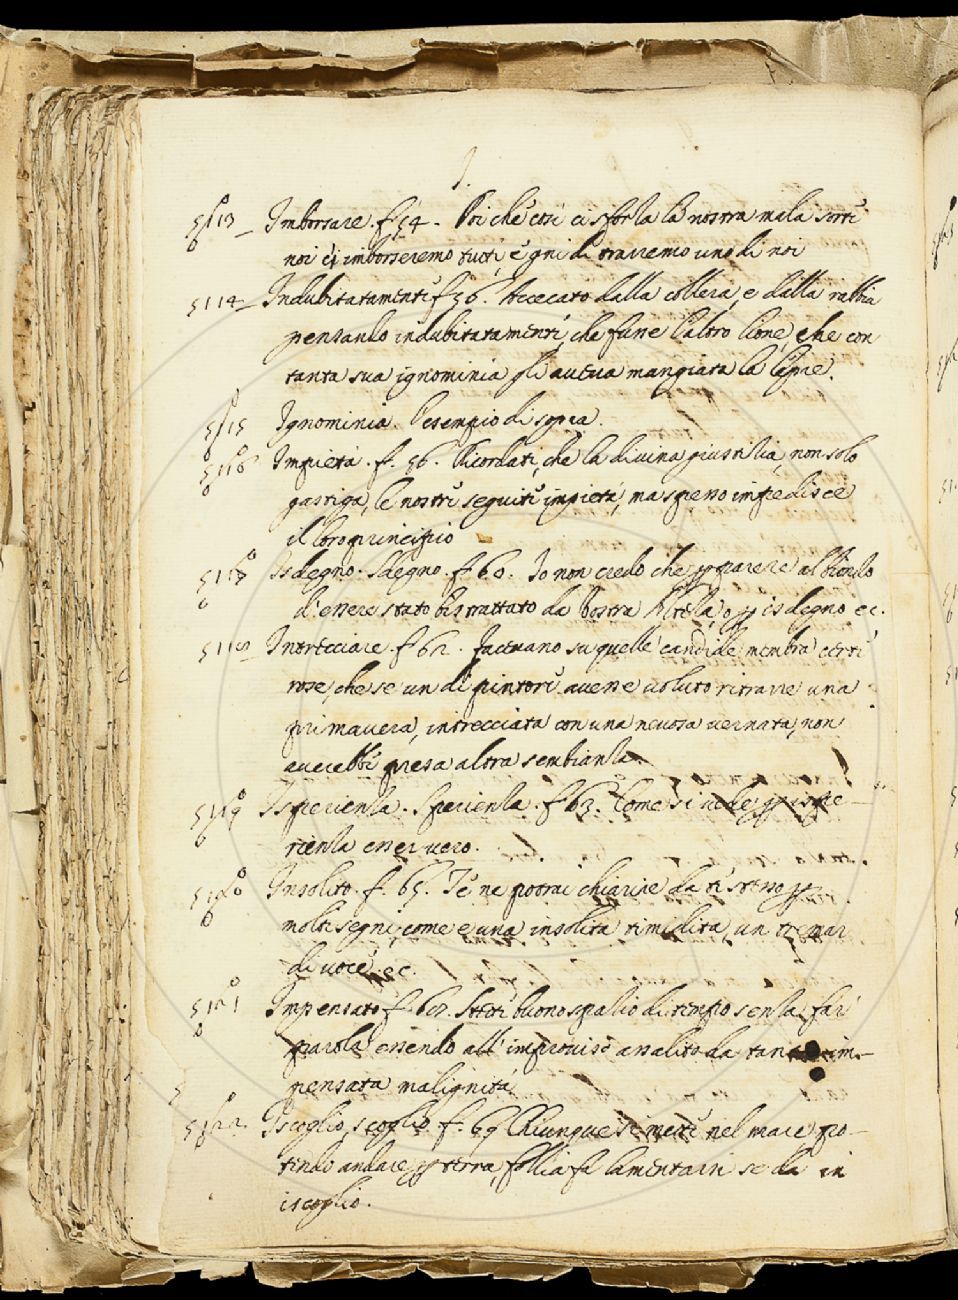 I.
5113 Imborsare. f. 54. Poi che così ci sforza la nostra mala sorte
noi ci imborseremo tutti, e gni di trarremo uno di noi
5114 Indubitatamente f. 56. Accecato dalla collera, e dalla rabbia
pensando indubitatamente, che fusse l'altro lione, che con
tanta sua ignominia gli aueua mangiata la lepre.
5115 Ignominia. l'esempio di sopra.
5116 Impietà. f. 56. Ricordati, che la diuina giustizia, non solo
gastiga, le nostre seguite impietà, ma spesso impedisce
il loro principio
5117 Isdegno. Sdegno. f. 60. Io non credo che per parere al
d'essere stato bistrattato da Vostra Altezza, o per isdegno ec.
5118 Intrecciare f. 62. faceuano su quelle candide membra certe
rose, che se un di pintore auesse uoluto ritrarre una
primauera, intrecciata con una neuosa uernata, non
auerebbe presa altra sembianza
5119 Isperienza. Sperienza. f. 63. Come si uede per ispe-
rienza esser uero.
5120 Insolito. f. 65. Te ne potrai chiarire da te stesso per
molti segni, come e una insolita timidita, un tremar
di uoce ec.
5121 Impensato f. 67. Stete buono spazio di tempo senza far
parola essendo all'improuiso assalito da tanta im-
pensata malignità
5122 Iscoglio, scoglio. f. 69 Chiunque si mette nel mare po-
tendo andare per terra, follia fa lamentarsi se da in
iscoglio.